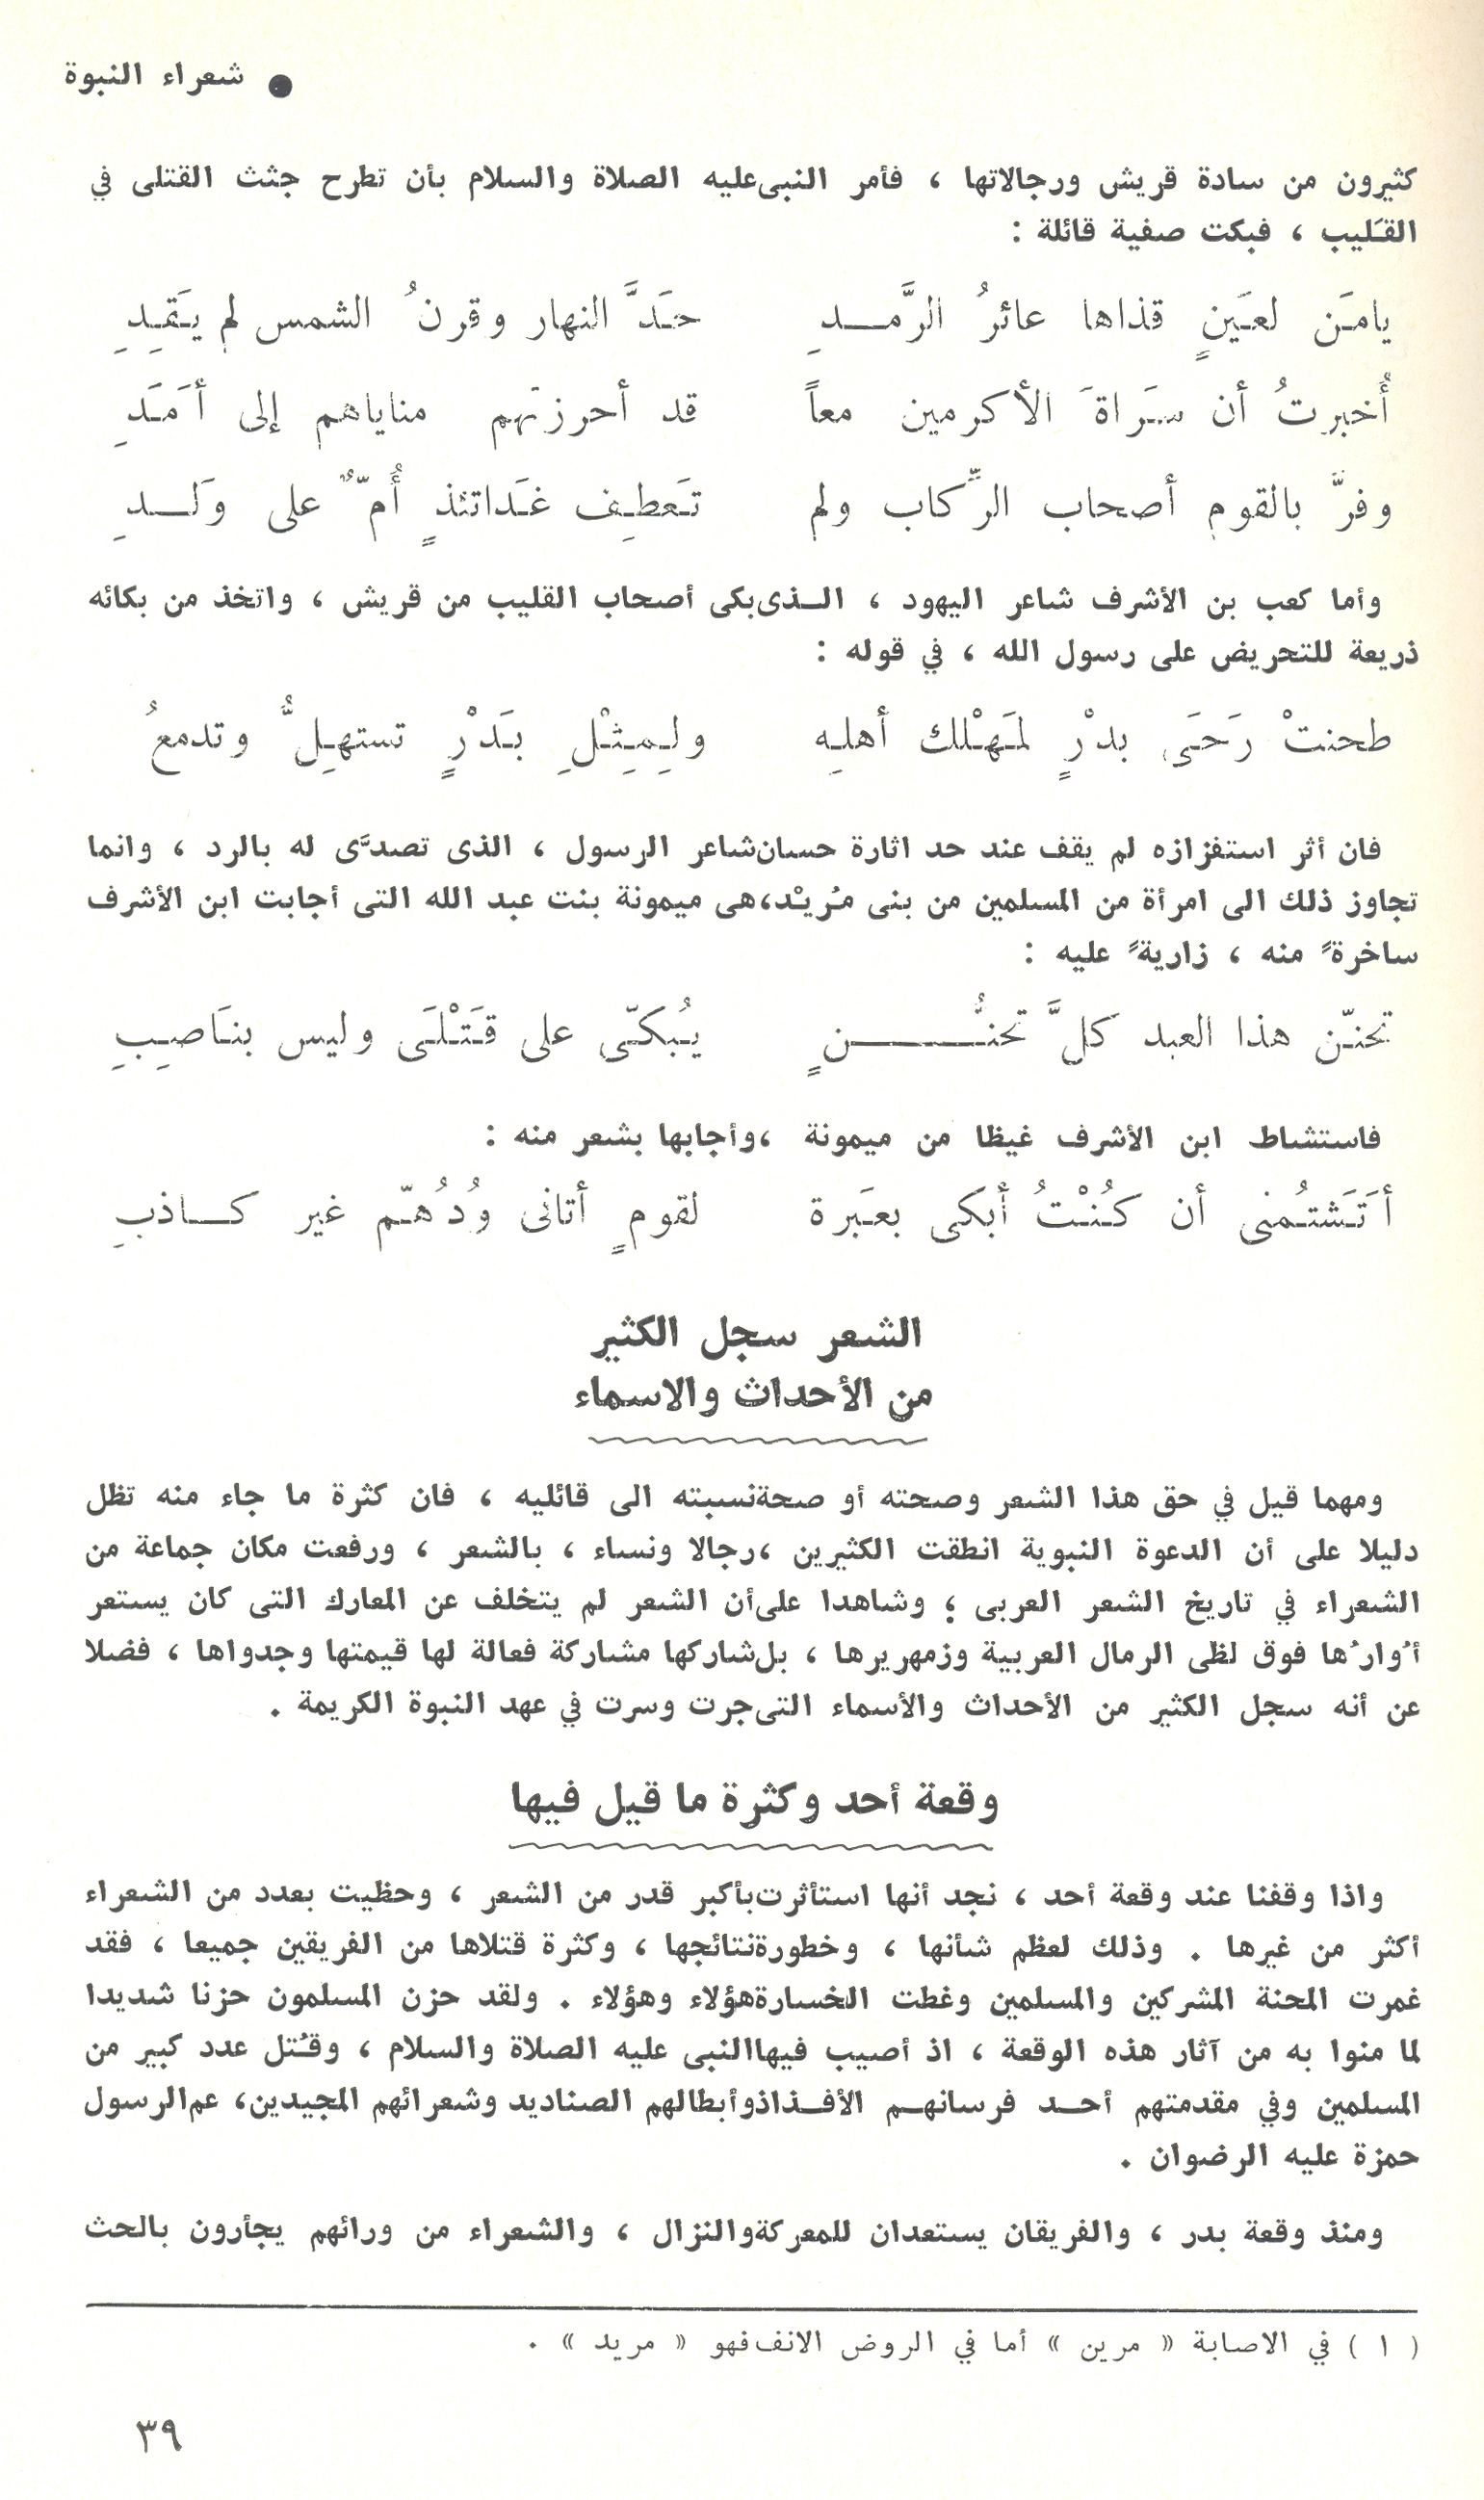 ● شعراء النبوة
كثيرون من سادة قريش ورجالاتها ، فأمر النبى عليه الصلاة والسلام بأن تطرح جثث القتلى في
القَليب ، فبكت صفية قائلة :
يامَن لعَينٍ قذاها عائرُ الرَّمـــدِ حَدَّ النهار وقرنُ الشمس لم يَقِدِ
أُخبرتُ أن سَراةَ الأكرمين معاً قد أحرزتهم مناياهم إلى أمَدِ
وفرَّ بالقوم أصحاب الرِّكاب ولم تَعطِف غَداتئذٍ أُمّ ٌ على وَلـــدِ
وأما كعب بن الأشرف شاعر اليهود ، الـذى بكى أصحاب القليب من قريش ، واتخذ من بكائه
ذريعة للتحريض على رسول الله ، في قوله :
طحنتْ رَحَى بدْرٍ لمَهْلك أهلِه ولِمِثْلِ بَدْرٍ تستهِلُّ وتدمعُ
فان أثر استفزازه لم يقف عند حد اثارة حسان شاعر الرسول ، الذى تصدَّى له بالرد ، وانما
تجاوز ذلك الى امرأة من المسلمين من بنى مُريْد، هى ميمونة بنت عبد الله التى أجابت ابن الأشرف
ساخرةً منه ، زاريةً عليه :
تحنّن هذا العبد كلَّ تحنُّـــــنٍ يُبكّى على قَتْلَى وليس بنَاصِبِ
فاستشاط ابن الأشرف غيظا من ميمونة ، وأجابها بشعر منه :
أتَشتُمنى أن كُنْتُ أبكى بعَبرة لقومٍ أتانى وُدُهّم غير كـــاذبِ
الشعر سجل الكثير
من الأحداث والاسماء
ومهما قيل في حق هذا الشعر وصحته أو صحة نسبته الى قائليه ، فان كثرة ما جاء منه تظل
دليلا على أن الدعوة النبوية انطقت الكثيرين ، رجالا ونساء ، بالشعر ، ورفعت مكان جماعة من
الشعراء في تاريخ الشعر العربى ؛ وشاهدا على أن الشعر لم يتخلف عن المعارك التى كان يستعر
أُوارُها فوق لظى الرمال العربية وزمهريرها ، بل شاركها مشاركة فعالة لها قيمتها وجدواها ، فضلا
عن أنه سجل الكثير من الأحداث والأسماء التى جرت وسرت في عهد النبوة الكريمة .
وقعة أحد وكثرة ما قيل فيها
واذا وقفنا عند وقعة أحد ، نجد أنها استأثرت بأكبر قدر من الشعر ، وحظيت بعدد من الشعراء
أكثر من غيرها . وذلك لعظم شأنها ، وخطورة نتائجها ، وكثرة قتلاها من الفريقين جميعا ، فقد
غمرت المحنة المشركين والمسلمين وغطت الخسارة هؤلاء وهؤلاء . ولقد حزن المسلمون حزنا شديدا
لما منوا به من آثار هذه الوقعة ، اذ أصيب فيها النبى عليه الصلاة والسلام ، وقُتل عدد كبير من
المسلمين وفي مقدمتهم أحــد فرسانهــم الأفــذاذ وأبطالهم الصناديد وشعرائهم المجيدين، عم الرسول
حمزة عليه الرضوان .
ومنذ وقعة بدر ، والفريقان يستعدان للمعركة والنزال ، والشعراء من ورائهم يجأرون بالحث
( ١ ) في الاصابة « مرين » أما في الروض الانف فهو « مريد » .
٣٩